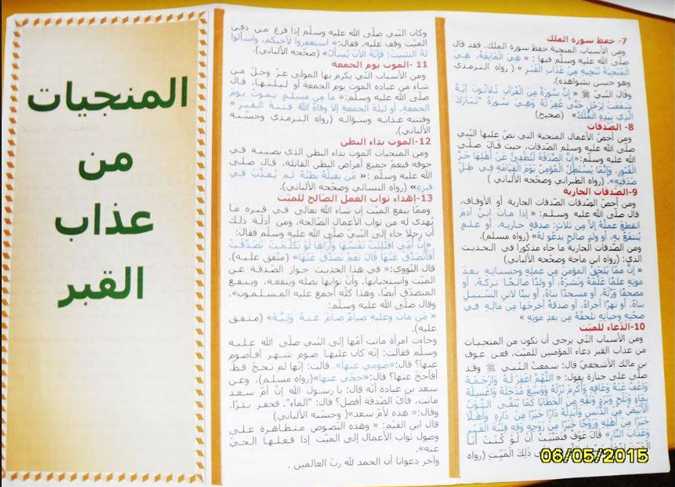 7- حفظ سورة الملك
ومن الأسباب المنجية حفظ سورة الملك، فقد قال
صلى الله عليه وسلم فيها : « هي المانعة، هي
المنجية تنجيه من عذاب القبر » ( رواه الترمذي
وهو حسن بشواهده).
وقال النبي ﷺ « إن سورة من القرآن ثلاثون آية
شفعت لرجل حتى غفر له وهي سورة "تبارك
الذي بيده الملك" » (صحيح)
8- الصدقات
ومن أخص الأعمال المنجية التي نص عليها النبي
صلى الله عليه وسلم الصدقات، حيث قال صلى
الله عليه وسلم: « إن الصدقة لتطفئ عن أهلها حر
القبور، وإنما يستظل المؤمن يوم القيامة في ظل
صدقته». (رواه الطبراني وصححه الألباني).
9-الصدقات الجارية
ومن أخص الصدقات الصدقات الجارية أو الأوقاف،
قال صلى الله عليه وسلم: « إذا مات ابن آدم
انقطع عمله إلا من ثلاث: صدقة جارية، أو علم
ينتفع به، أو ولد صالح يدعو له» (رواه مسلم).
ومن الصدقات الجارية ما جاء مذكورا في الحديث
الذي: (رواه ابن ماجة وصححه الألباني)
« إن مما يلحق المؤمن من عمله وحسناته بعد
موته علما علمه ونشره، أو ولدا صالحا تركه، أو
مصحفا ورثه، أو مسجدا بناه أو بيتا لابن السبيل
بناه، أو نهرا أجراه، أو صدقة أخرجها من ماله في
صحته وحياته تلحقه من بعد موته »
10-الدعاء للميت
ومن الأسباب التي يرجى أن تكون من المنجيات
من عذاب القبر دعاء المؤمنين للميت، فعن عوف
بن مالك الأشجعي قال: سمعت النبي ﷺ وقد
صلى على جنازة يقول: « اللهم اغفر له وارحمه
واعف عنه وعافه وأكرم نزله ووسع مدخله واغسله
بماء وثلج وبرد ونقه من الخطايا كما ينقى الثوب
الأبيض من الدنس وأبدله دارا خيرا من داره وأهلا
خيرا من أهله وزوجا خيرا من زوجه وقه فتنة القبر
وعذاب النار» قال عوف فتمنيت أن لو كنت أنا
ذلك الميت (رواه
وكان النبي صلى الله عليه وسلم إذا فرغ من دفن
الميت وقف عليه، فقال:« استغفروا لأخيكم، واسألوا
له التثبيت؛ فإنه الآن يسأل» (صححه الألباني).
11 -الموت يوم الجمعة
ومن الأسباب التي يكرم بها المولى عز وجل من
شاء من عباده الموت يوم الجمعة أو ليلتها، قال
صلى الله عليه وسلم:« ما من مسلم يموت يوم
الجمعة، أو ليلة الجمعة إلا وقاه الله فتنة القبر »
وفتنته عذابه وسؤاله ( رواه الترمذي وحسنه
الألباني).
12-الموت بداء البطن
ومن المنجيات الموت بداء البطن الذي يصيبه في
جوفه فيعم جميع أمراض البطن القاتلة، قال صلى
الله عليه وسلم: « من يقتله بطنه لم يعذب في
قبره» (رواه النسائي وصححه الألباني).
13-اهداء ثواب العمل الصالح للميت
ومما ينفع الميت إن شاء الله تعالى في قبره ما
يهدى له من ثواب الأعمال الصالحة، ومن أدلة ذلك
أن رجلا جاء إلى النبي صلى الله عليه وسلم فقال:
«إن أمي افتلتت نفسها وأراها لو تكلمت تصدقت،
أفأتصدق عنها قال نعم تصدق عنها» (متفق عليه).
قال النووي: « في هذا الحديث جواز الصدقة عن
الميت واستحبابها، وأن ثوابها يصله وينفعه، وينفع
المتصدق أيضا، وهذا كله أجمع عليه المسلمون».
وقال صلى الله عليه وسلم:
« من مات وعليه صيام صام عنه وليه» (متفق
عليه).
وجاءت امرأة ماتت أمها إلى النبي صلى الله عليه
وسلم فقالت: إنه كان عليها صوم شهر أفأصوم
عنها؟ قال: «صومي عنها». قالت: إنها لم تحج قط
أفأحج عنها؟ قال:«حجي عنها»(رواه مسلم). وعن
سعد بن عبادة أنه قال: يا رسول الله إن أم سعد
ماتت، فأي الصدقة أفضل؟ قال: "الماء"، فحفر بئرا،
وقال:« هذه لأم سعد»( وحسنه الألباني)
قال ابن القيم: « وهذه النصوص متظاهرة على
وصول ثواب الأعمال إلى الميت إذا فعلها الحي
عنه»
وآخر دعوانا أن الحمد لله رب العالمين .
المنجيات
من
عذاب
القبر
06/05/2015